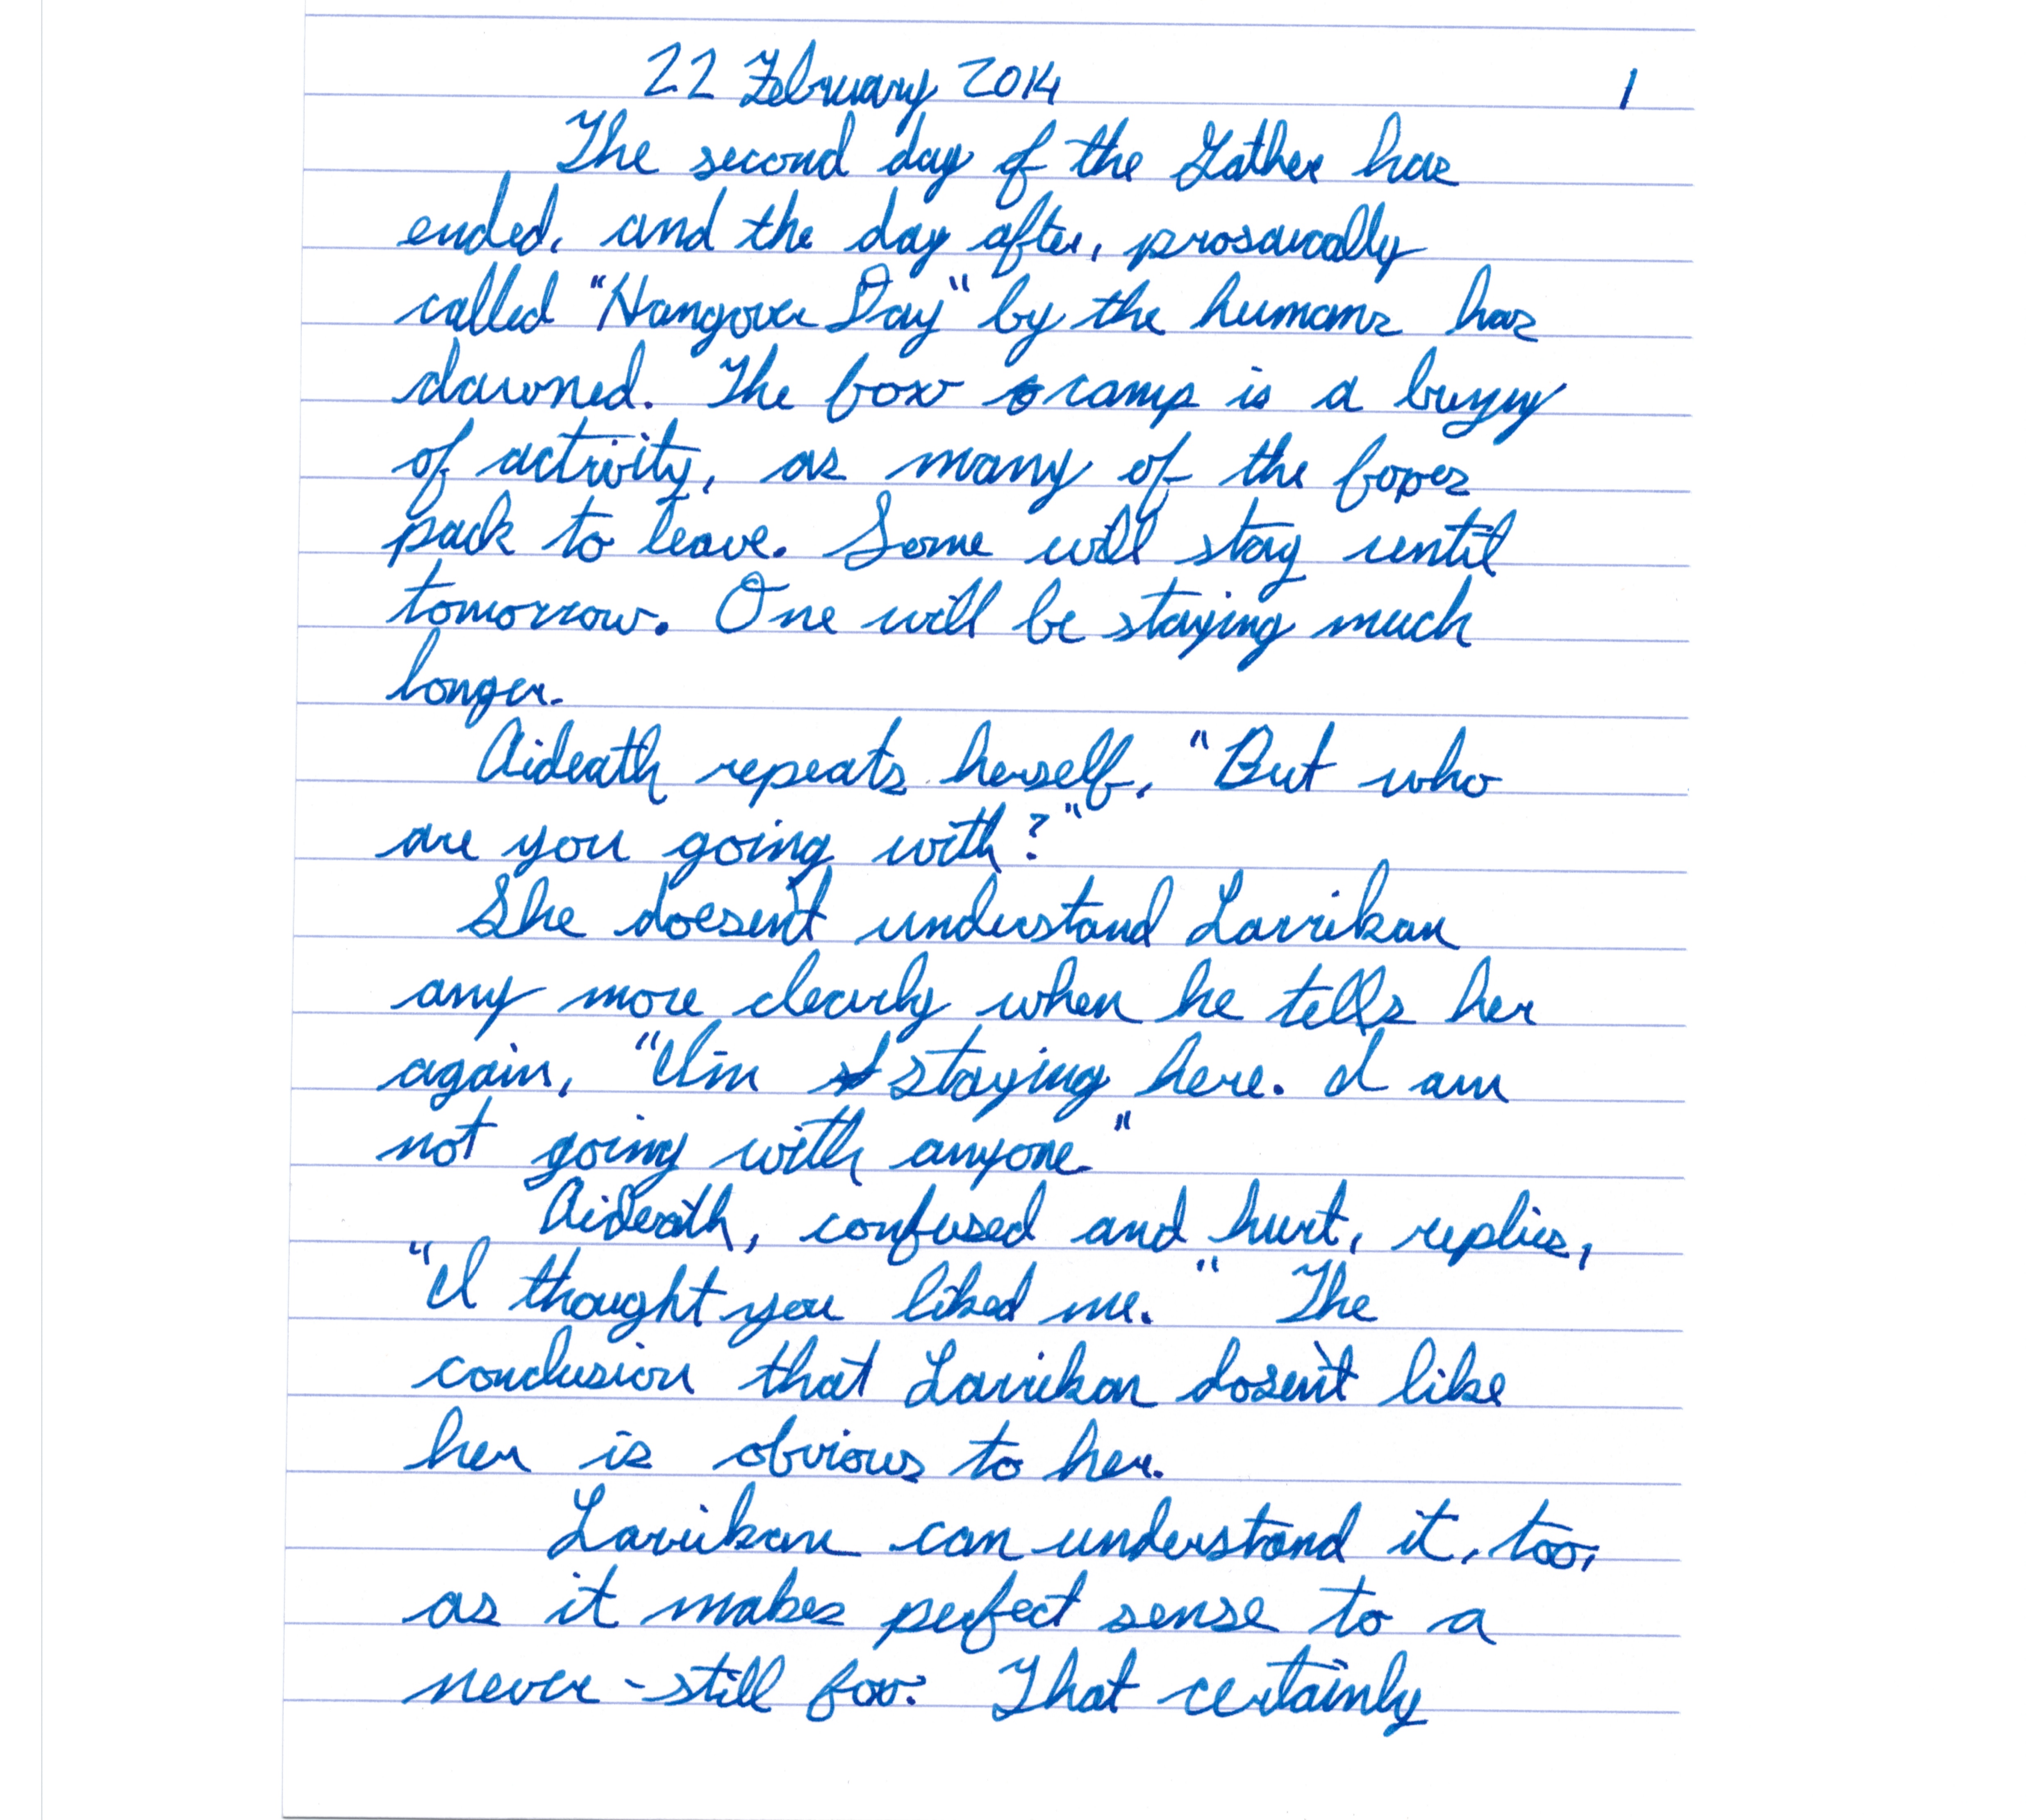 22 February 2014 1
The second day of the Gather has
ended, and the day after, prosaically
called "Hangover Day" by the humans has
dawned. The fox camp is a buzzy
of activity, as many of the foxes
pack to leave. Some will stay until
tomorrow. One will be staying much
longer.
Aideath repeats herself, "But who
are you going with?"
She doesen't understand Larrikan
any more clearly when he tells her
again, "I'm staying here. I am
not going with anyone"
Aideath, confused and hurt, replies,
"I thought you liked me." The
conclusion that Larrikan dosen't like
her is obvious to her.
Larrikan can understand it, too,
as it makes perfect sense to a
never-still fox. That certainly